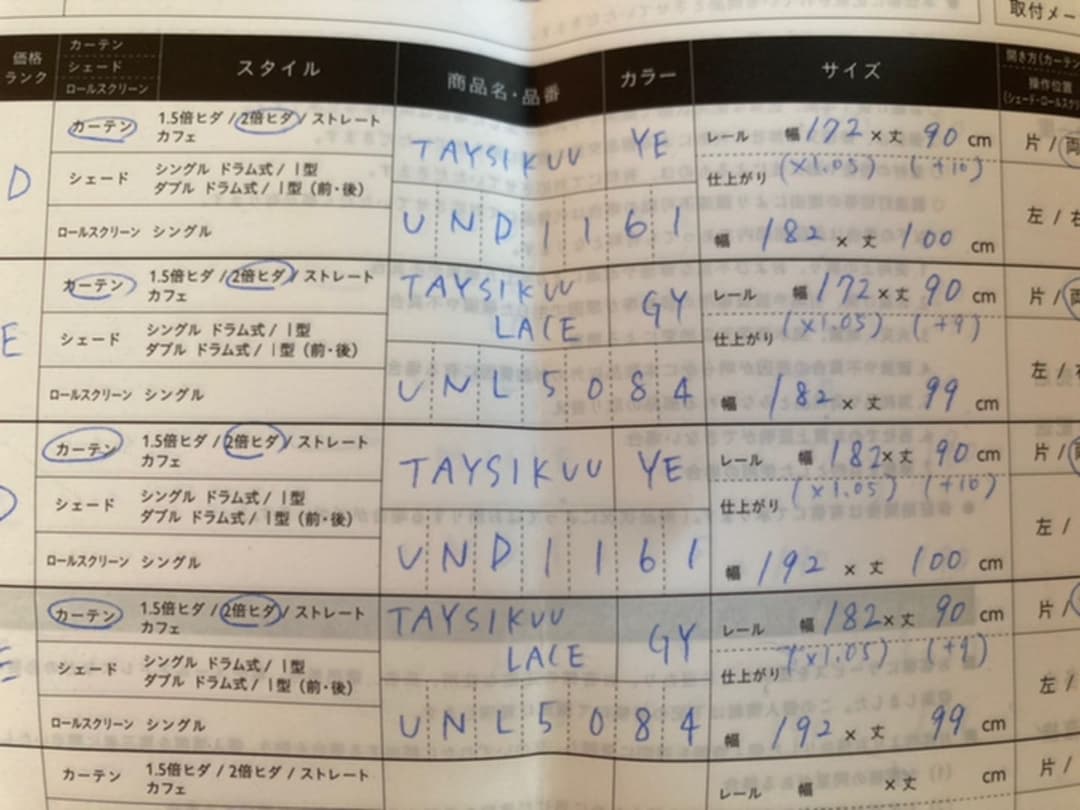 取付メー
価格
ランク
カーテン
シェード
ロールスクリーン
スタイル
商品名・品番
カラー
サイズ
開き方(カーテン
操作位置
(シェード・ロールスクリ
D
カーテン
1.5倍ヒダ / 2倍ヒダ / ストレート
カフェ
TAYSIKUU
YE
レール 幅 172 × 丈 90 cm
片 / 両
シェード
シングル ドラム式 / I型
ダブル ドラム式 / I型 (前・後)
仕上がり (×1.05) (+10)
ロールスクリーン シングル
UND1161
幅 182 × 丈 100 cm
左 / 右
E
カーテン
1.5倍ヒダ / 2倍ヒダ / ストレート
カフェ
TAYSIKUU
LACE
GY
レール 幅 172 × 丈 90 cm
片 / 両
シェード
シングル ドラム式 / I型
ダブル ドラム式 / I型 (前・後)
仕上がり (×1.05) (+9)
ロールスクリーン シングル
UNL5084
幅 182 × 丈 99 cm
左 / 右
カーテン
1.5倍ヒダ / 2倍ヒダ / ストレート
カフェ
TAYSIKUU
YE
レール 幅 182 × 丈 90 cm
片 / 両
シェード
シングル ドラム式 / I型
ダブル ドラム式 / I型 (前・後)
仕上がり (×1.05) (+10)
ロールスクリーン シングル
UND1161
幅 192 × 丈 100 cm
左 /
カーテン
1.5倍ヒダ / 2倍ヒダ / ストレート
カフェ
TAYSIKUU
LACE
GY
レール 幅 182 × 丈 90 cm
片 /
シェード
シングル ドラム式 / I型
ダブル ドラム式 / I型 (前・後)
仕上がり (×1.05) (+9)
ロールスクリーン シングル
UNL5084
幅 192 × 丈 99 cm
左 /
カーテン
1.5倍ヒダ / 2倍ヒダ / ストレート
カフェ
レール 幅 × 丈 cm
片 /